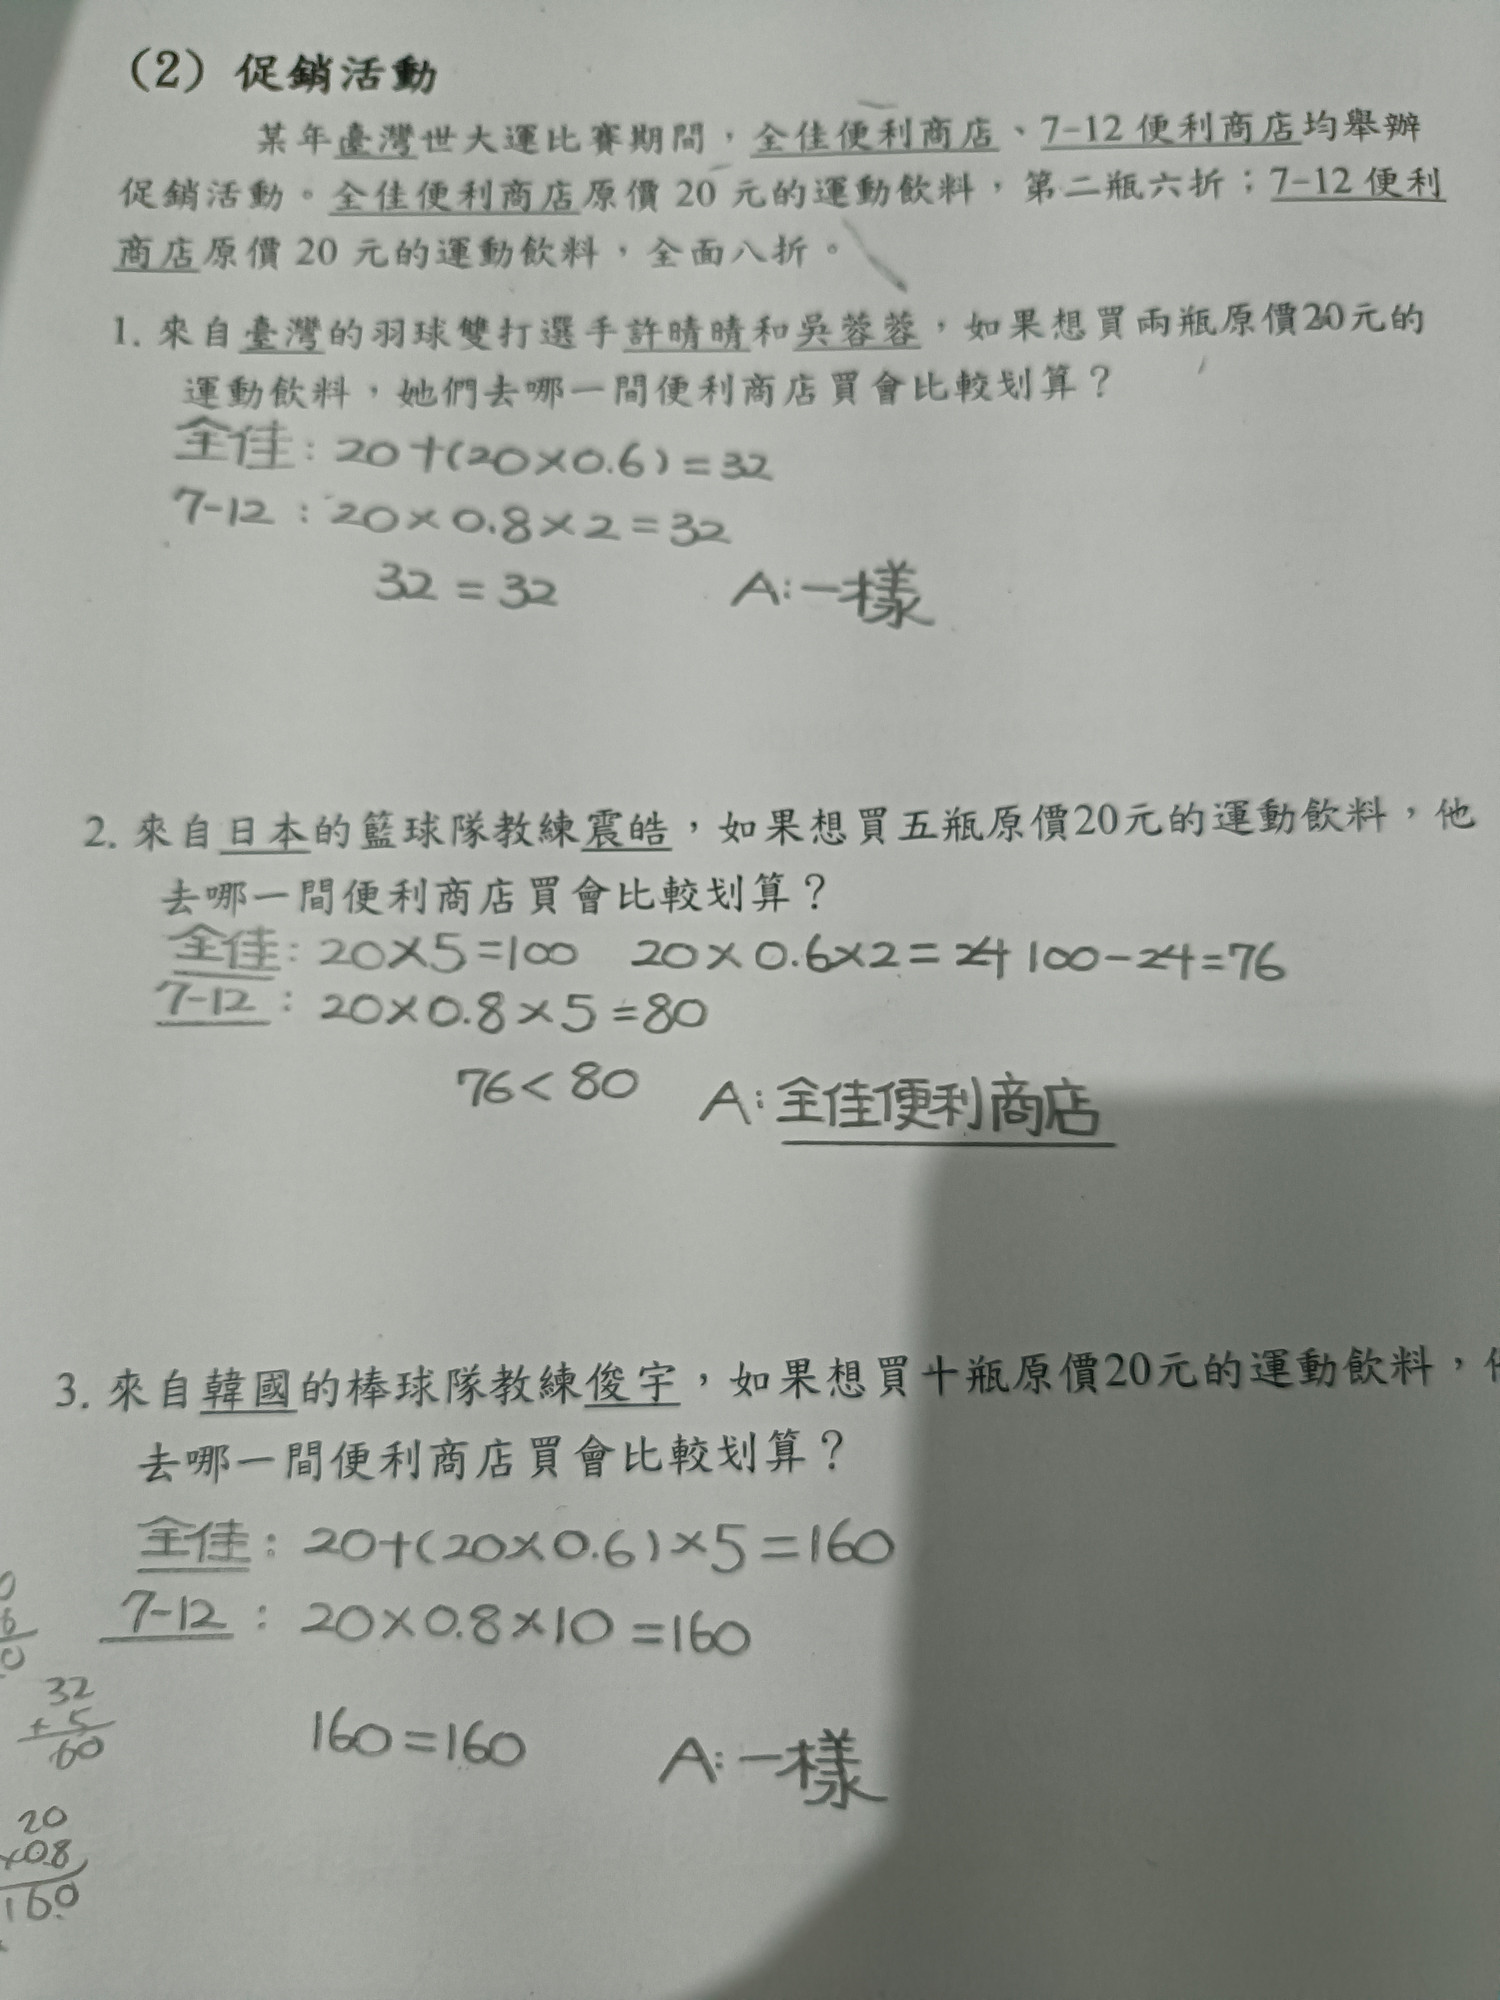 (2) 促銷活動
某年臺灣世大運比賽期間，全佳便利商店、7-12便利商店均舉辦
促銷活動。全佳便利商店原價 20 元的運動飲料，第二瓶六折；7-12便利
商店原價 20 元的運動飲料，全面八折。
1. 來自臺灣的羽球雙打選手許晴晴和吳蓉蓉，如果想買兩瓶原價20元的
運動飲料，她們去哪一間便利商店買會比較划算？
全佳：20+(20×0.6)=32
7-12：20×0.8×2=32
32=32 A:一樣
2. 來自日本的籃球隊教練震皓，如果想買五瓶原價20元的運動飲料，他
去哪一間便利商店買會比較划算？
全佳：20×5=100 20×0.6×2=24 100-24=76
7-12：20×0.8×5=80
76<80 A:全佳便利商店
3. 來自韓國的棒球隊教練俊宇，如果想買十瓶原價20元的運動飲料，
去哪一間便利商店買會比較划算？
全佳：20+(20×0.6)×5=160
7-12：20×0.8×10=160
32
+5
60
160=160 A:一樣
20
×08
160